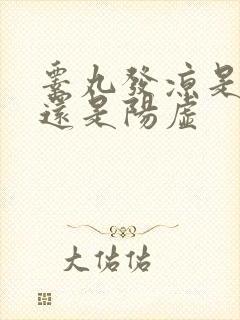 睪丸發涼是
還是陽虛
大佑佑